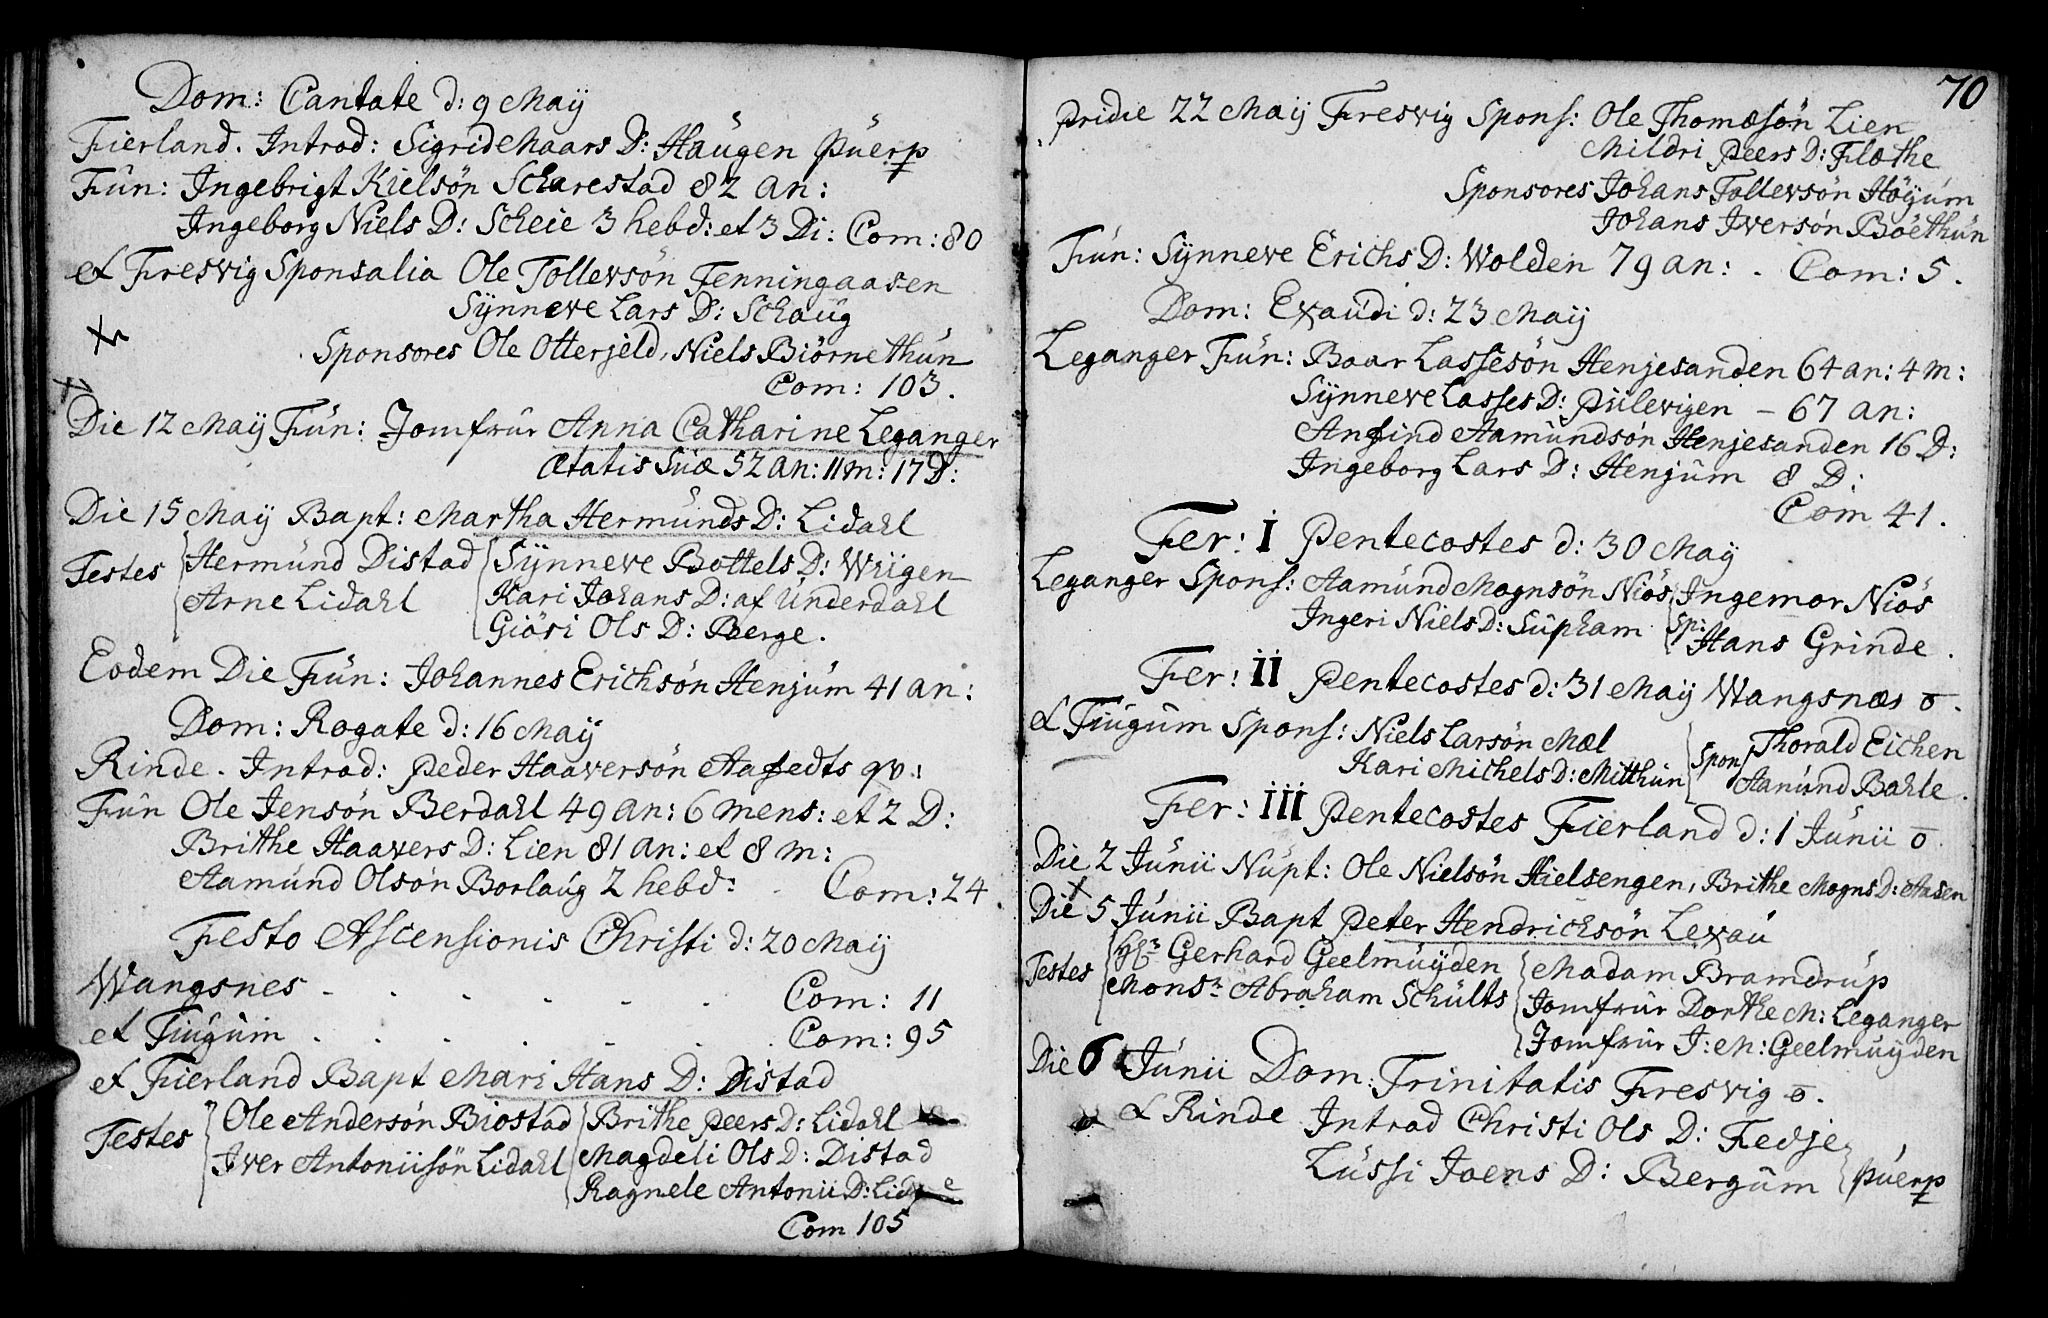 Dom: Cantate d: 9 Maij
Fierland. Introd: Sigrid Maars D: Haugen Puerp
Fun: Ingebrigt Kielsön Scharestad 82 an:
Ingeborg Niels D: Scheie 3 hebd: et 3 Di: Com: 80
et Fresvig Sponsalia Ole Tollevsön Fenningaasen
Synneve Lars D: Schaug
Sponsores Ole Otterjeld, Niels Biörnethun
Com: 103.
Die 12 Maij Fun: Jomfrur Anna Catharine Leganger
Ætatis Suæ 52 an: 11 m: 17 D:
Die 15 Maij Bapt: Martha Hermunds D: Lidahl
Testes Hermund Distad Synneve Bottels D: Wiigen
Arne Lidahl Kari Johans D: af Underdahl
Giösi Ols D: Berge.
Eodem Die Fun: Johannes Erichsön Henjum 41 an:
Dom: Rogate d: 16 Maij
Rinde. Introd: Peder Haaversön Aafedts qv:
Fun Ole Jensön Berdahl 49 an: 6 mens: et 2 D:
Brithe Haavers D: Lien 81 an: et 8 m:
Aamund Olsön Borlaug 2 hebd: . Com: 24
Festo Ascensionis Christi d: 20 Maij
Wangsnes - . . . . . Com: 11
et Fiugum . . . . . . Com: 95
et Fierland Bapt Mari Hans D: Distad
Testes Ole Andersön Biostad Brithe Peers D: Lidahl
Iver Antoniisön Lidahl Magdeli Ols D: Distad
Ragnele Antonii D:
Com 105
70
Pridie 22 Maij Fresvig Spons: Ole Thomæsön Lien
Mildri Peers D: Flæthe
Sponsores Johans Tollevsön Höyum
Johans Iversön Böethun
Fun: Synneve Erichs D: Wolden 79 an: . Com: 5.
Dom: Exaudi d: 23 Maij
Leganger Fun: Baar Lassesön Henjesanden 64 an: 4 m:
Synneve Lasses D: Pilevigen - 67 an:
Anfind Aamundsön Henjesanden 16 D:
Ingeborg Lars D: Henjum 8 D:
Com 41.
Fer: I Pentecostes d: 30 Maij
Leganger Spons: Aamund Mognsön Niös Ingemor Niös
Ingeri Niels D: Supham Sp: Hans Grinde.
Fer: II Pentecostes d: 31 Maij Wangsnæs o.
et Fiugum Spons: Niels Larsön Mæl Spons Thorald Eichen
Kari Michels D: Mitthun Aamund Bahle.
Fer: III Pentecostes Fierland d: 1 Junii o.
Die 2 Junii Nupt: Ole Nielsön Hielsengen, Brithe Mogns D: Aasen
Die 5 Junii Bapt Peter Hendrichsön Lexau
Testes Hr Gerhard Geelmuyden Madam Bramdrup
Monsr Abraham Schults Jomfrur Dorthe M: Leganger
Jomfrur J: M: Geelmuyden
Die 6 Junii Dom: Trinitatis Fresvig o.
et Rinde Introd Christi Ols D: Fedje
Lussi Joens D: Bergum Puerp